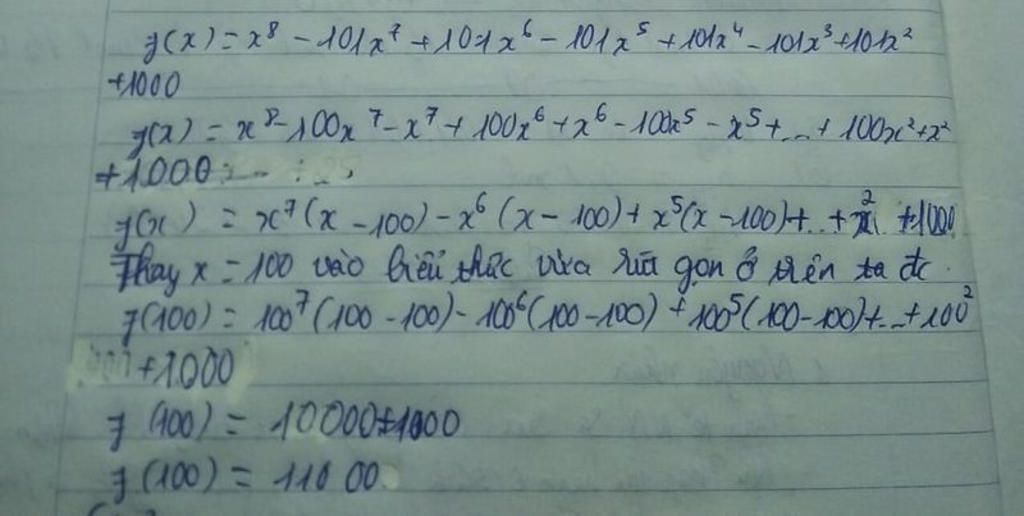 f(x) = x⁸ - 101x⁷ + 101x⁶ - 101x⁵ + 101x⁴ - 101x³ + 101x²
+1000
f(x) = x⁸ - 100x⁷ - x⁷ + 100x⁶ + x⁶ - 100x⁵ - x⁵ + ... + 100x² + x²
+1000
f(x) = x⁷(x - 100) - x⁶(x - 100) + x⁵(x - 100) + .. + x² +1000
Thay x = 100 vào biểu thức vừa rút gọn ở trên ta đc
f(100) = 100⁷(100 - 100) - 100⁶(100 - 100) + 100⁵(100 - 100) + ... + 100²
+1000
f(100) = 10000+1000
f(100) = 11000